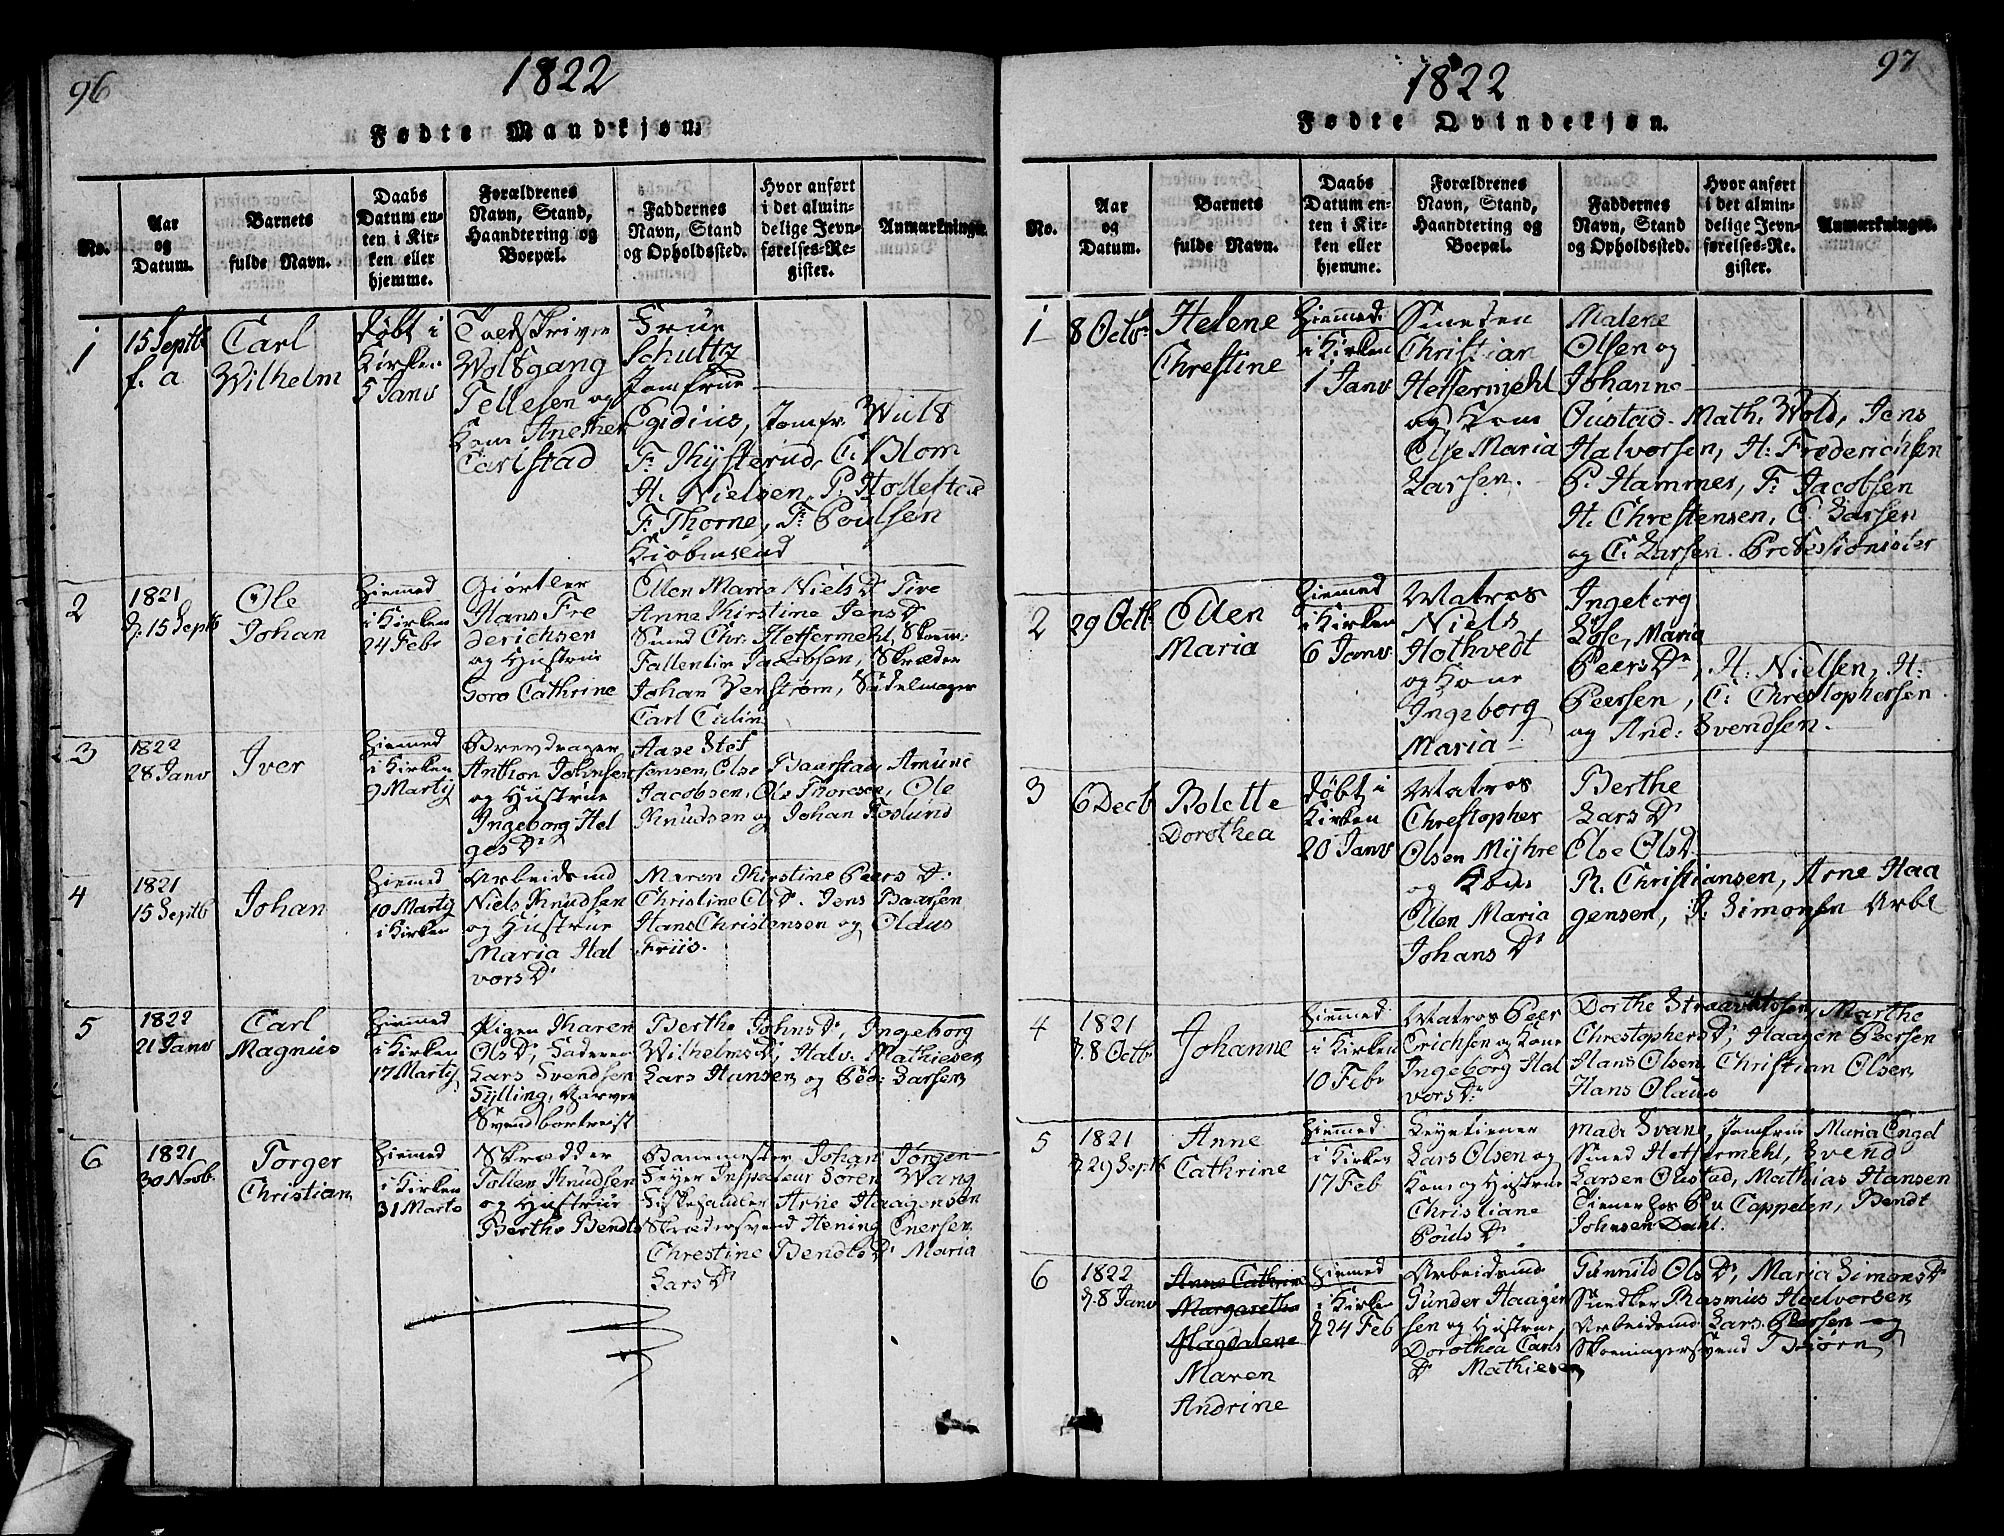 96
1822
Fødte Mandkjøn.
No.
Aar
og
Datum.
Barnets
fulde Navn.
Daabs
Datum en-
ten i Kir-
ken eller
hjemme.
Forældrenes
Navn, Stand,
Haandtering og
Boepæl.
Faddernes
Navn, Stand
og Opholdssted.
Hvor anført
i det almin-
delige Jevn-
førelses-Re-
gister.
Anmærkninger.
1
15 Septb
f. a.
Carl
Wilhelm
døbt i
Kirken
5 Janv
Toldskriver
Wolfgang
Tellefsen og
Kone Anethe
Carlstad
Frue
Schultz
Jomfrue
Egidius, Jomfr. Wulf
F. Thÿsterud, C. Blom
H. Nielsen, P. Hollefsta
F. Thorne, F. Poulsen
Kiøbmænd
2
1821
d. 15 Septb
Ole
Johan
Hiemmed
i Kirken
24 Febr
Giørtler
Hans Fre
derichsen
og Hustrue
Goro Cathrine
Ellen Maria Niels Dr Tive
Anne Kirstine Jens Dr
Smed Chr. Heffermehl, Skoem:
Fallentin Jacobsen, Skræder
Johan Verstrøm, Sadelmager
Carl Calin
3
1822
28 Janv
Iver
Hiemmed
i Kirken
9 Martÿ
Brevdrager
Anthon Johnsen
og Hustrue
Ingeborg Hel
ges Dr
Aase Stef
fensen, Else Baarstad, Amune
Jacobsen, Ole Thoresen, Ole
Knudsen og Johan Foslund
4
1821
15 Septb
Johan
Hiemmed
10 Martÿ
i Kirken
Arbeidsmd
Niels Knudsen
og Hustrue
Maria Hal
vors Dr
Maren Kirstine Peers Dr.
Christine Ols Dr. Jens Baarsen
Hans Christensen og Olaus
Friis.
5
1822
21 Janv
Carl
Magnus
Hiemmed
i Kirken
17 Martÿ
Pigen Karen
Ols Dr, Faderen
Lars Svendsen
Fÿlling, Garver
Svend bortreist
Berthe Johns Dr, Ingeborg
Wilhelms Dr, Halv. Mathiesen
Lars Hansen og Ped: Larsen
6
1821
30 Novb.
Torger
Christian
Hiemmed
i Kirken
31 Marts
Skrædder
Tollev Knudsen
og Hustrue
Berthe Bendts
Banemester Johan Jørgen
Feyer Inspecteur Søren Wang
Fiskehandler Arne Haagensen
Skrædersvend Hening Enersen
Chrestine Bendts Dr Maria
Lars Dr
97
1822
Fødte Qvindekjøn.
No.
Aar
og
Datum.
Barnets
fulde Navn.
Daabs
Datum en-
ten i Kir-
ken eller
hjemme.
Forældrenes
Navn, Stand,
Haandtering og
Boepæl.
Faddernes
Navn, Stand
og Opholdssted.
Hvor anført
i det almin-
delige Jevn-
førelses-Re-
gister.
Anmærkninger.
1
8 Octbr
Helene
Chrestine
Hiemmed:
i Kirken
1 Janv
Smeden
Christian
Heffermehl
og Kone
Else Maria
Larsen.
Malene
Olsen og
Johanne
Oustad. Math. Wold, Jens
Halvorsen, H. Frederichsen
P. Hammer, F. Jacobsen
H. Chrestensen, C. Larsen
og C. Larsen. Professionister
2
29 Octb
Ellen
Maria
Hiemmed
i Kirken
6 Janv
Matros
Niels
Hothvedt
og Kone
Ingeborg
Maria
Ingeborg
Lÿse, Maria
Peers Dr, H. Nielsen, H.
Peersen, C. Chrestophersen
og And: Svendsen.
3
6 Decb
Bolette
Dorothea
døbt i
Kirken
20 Janv
Matros
Chrestopher
Olsen Mÿhre
og Kone
Ellen Maria
Johans Dr
Berthe
Lars Dr
Else Ols Dr
R. Christiansen, Arne Haa
gensen, J. Simonsen Arbe
4
1821
d. 8 Octb
Johanne
Hiemmed
i Kirken
10 Febr
Matros Peer
Erichsen og Kone
Ingeborg Hal
vors Dr
Dorthe Marthe
Chrestophers Dr, Haagen Peersen
Hans Olsen, Christian Olsen
Hans Olaus
5
1821
d. 29 Septb
Anne
Cathrine
Hiemmed
i Kirken
17 Feb
Leyetiener
Lars Olsen og
Kone og Hustrue
Christiane
Pouls Dr
Mad: Svane, Jomfrue Maria Engel
Smed Heffermehl, Svend
Larsen Olustad, Mathias Hansen
Tiener hos P. v Cappelen, Bendt
Johnsen Dahl.
6
1822
d. 8 Janv
Anne Cathrine
Margarethe
Magdalene
Maren
Andrine
Hiemmed
i Kirken
d 24 Feb
Arbeidsmd
Gunder Haagen
sen og Hustrue,
Dorothea Carls
Dr Mathiesen
Gunnild Ols Dr, Maria Simons Dr
Snedker Rasmus Halvorsen
Arbeidsmd. Lars Peersen og
Skoemagersvend Biørn